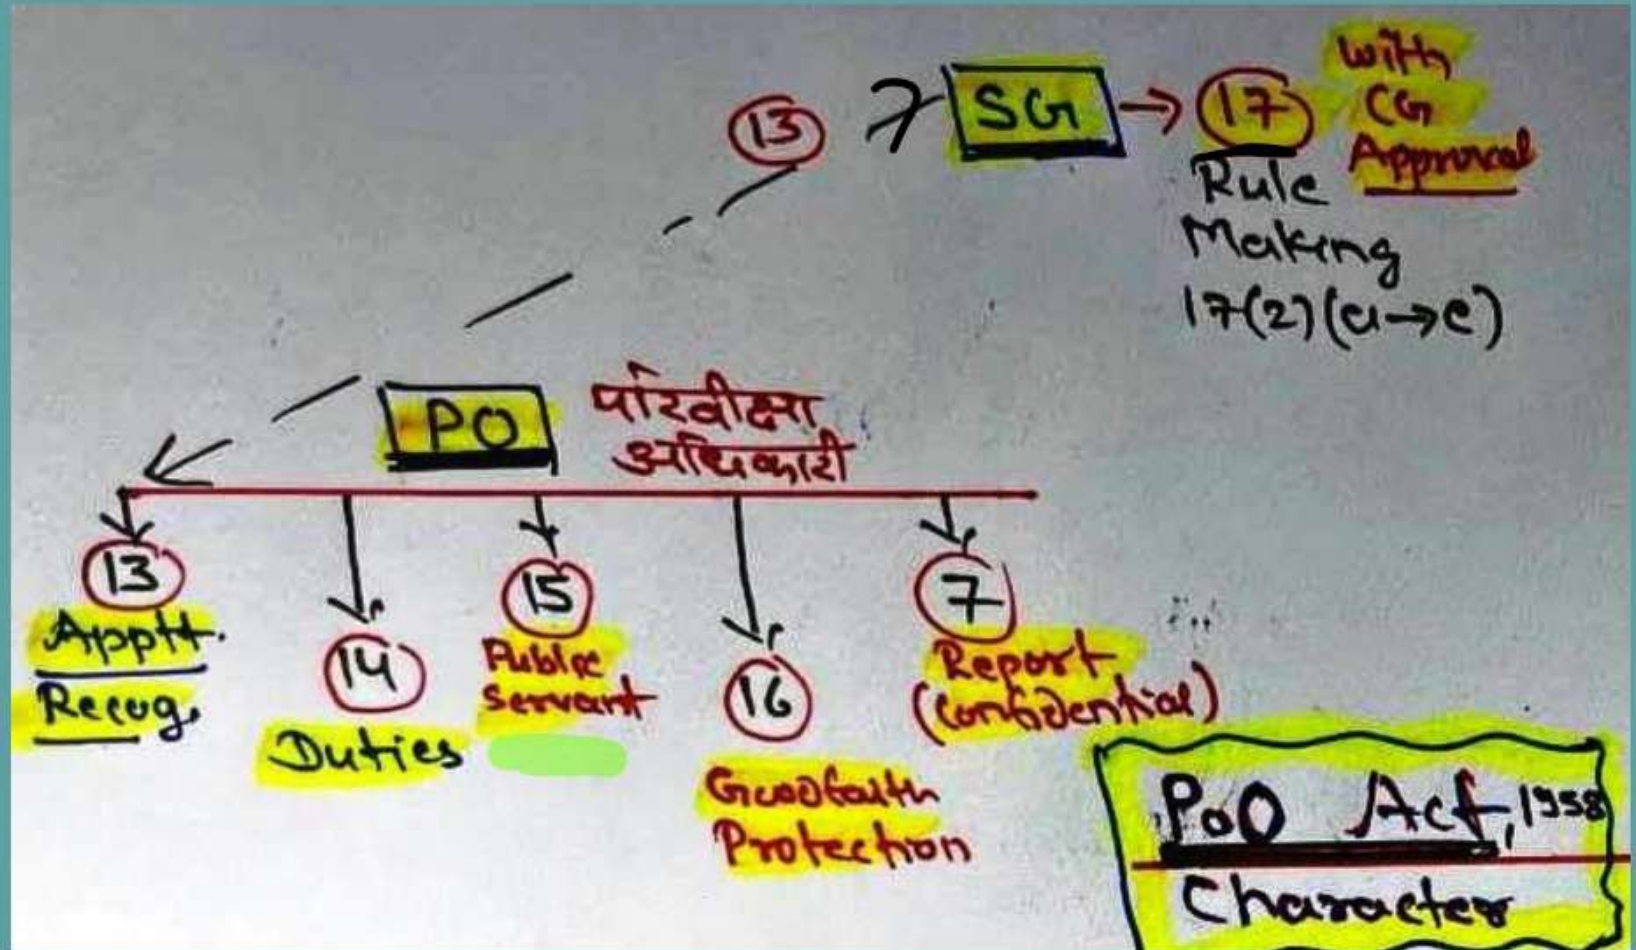 13
SG → 17 with CG Approval
Rule
Making
17(2)(a→e)
PO
परिवीक्षा
अधिकारी
13
Apptt.
Recog.
14
Duties
15
Public
Servant
16
Goodfaith
Protection
7
Report
(Confidential)
PoO Act, 1958
Character